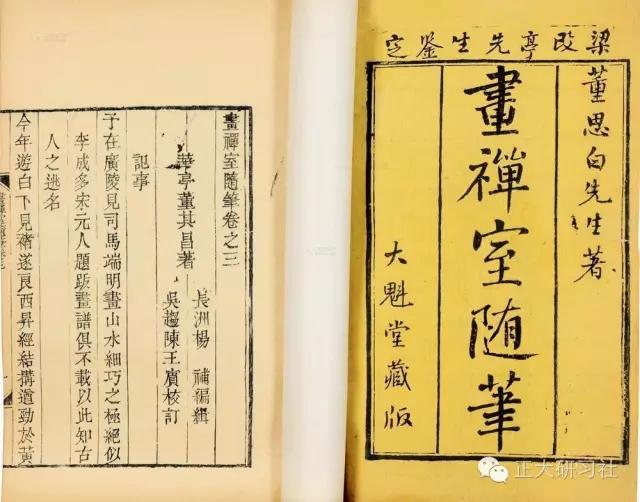 梁改亭先生鉴定
董思白先生著
畫禪室随筆
大魁堂藏版
畫禪室隨筆卷之三
華亭董其昌著
長洲楊 補編輯
吳趨陳王賓校訂
記事
予在廣陵見司馬端明畫山水細巧之極絕似
李成多宋元人題跋畫譜俱不載以此知古
人之逃名
今年遊白下見褚遂良西昇經結搆遒勁於黃
正大研习社